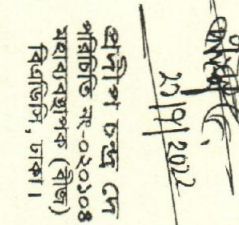 23/9/2022
প্রদীপ চন্দ্র দে
পরিচিতি নং-০২০১০৪
মহাব্যবস্থাপক (বীজ)
বিএডিসি, ঢাকা।